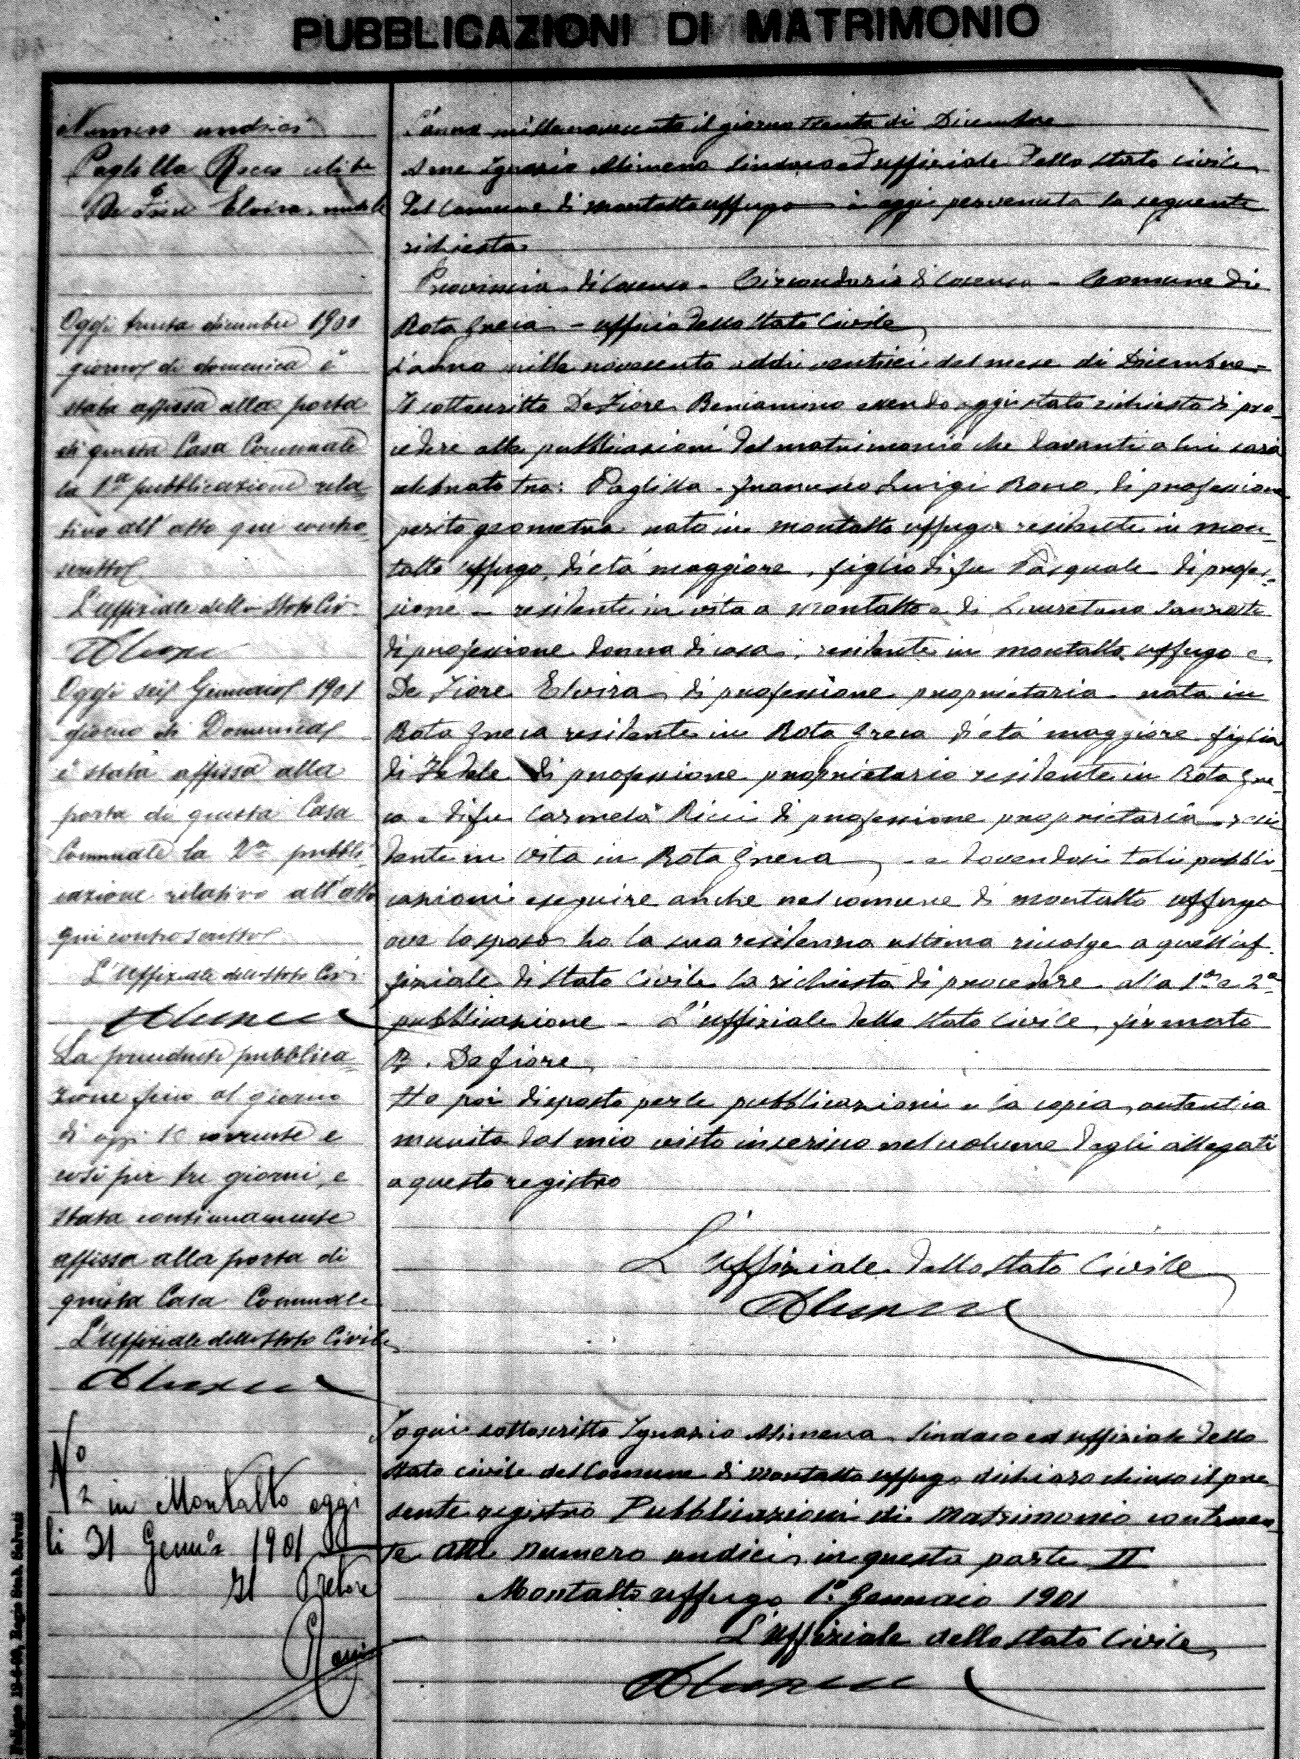 PUBBLICAZIONI DI MATRIMONIO
Numero undici
Paglilla Rocco celibe
e
De Fiore Elvira, nubile
Oggi trenta dicembre 1900
giorno di domenica è
stata affissa alla porta
di questa Casa Comunale
la 1ª pubblicazione rela-
tivo all'atto qui contro-
scritto
L'uffiziale dello Stato Civ.
Oggi sei Gennaio 1901
giorno di Domenica
è stata affissa alla
porta di questa Casa
Comunale la 2ª pubbli-
cazione relativo all'atto
qui controscritto
L'uffiziale dello Stato Civ.
La precedente pubblica-
zione fino al giorno
di oggi corrente e
così per tre giorni, è
stata continuamente
affissa alla porta di
questa Casa Comunale
L'uffiziale dello Stato Civile
Nº 2 in Montalto oggi
li 31 Genn.º 1901
Il Pretore
L'anno millenovecento il giorno trenta di Dicembre
A me Ignazio Alimena Sindaco ed uffiziale dello stato civile
del Comune di Montalto uffugo è oggi pervenuta la seguente
richiesta.
Provincia di Cosenza - Circondario di Cosenza - Comune di
Rota Greca - ufficio dello Stato Civile
L'anno mille novecento addì ventisei del mese di Dicembre -
Il sottoscritto De Fiore Beniamino essendo oggi stato richiesto di pro-
cedere alle pubblicazioni del matrimonio che davanti a lui sarà
celebrato tra: Paglilla Francesco Luigi Rocco, di professione
perito geometra nato in Montalto uffugo residente in Mon-
talto uffugo, di età maggiore, figlio di fu Pasquale di profes-
sione - residente in vita a Montalto e di
di professione donna di casa, residente in Montalto uffugo e
De Fiore Elvira di professione proprietaria nata in
Rota Greca residente in Rota Greca d'età maggiore figlia
di Fedele di professione proprietario residente in Rota Gre-
ca e di fu Carmela Ricci di professione proprietaria resi
dente in vita in Rota Greca - e dovendosi tali pubbli-
cazioni eseguire anche nel comune di Montalto uffugo
ove lo sposo ha la sua residenza ultima rivolge a quest'uf-
fiziale di Stato Civile la richiesta di procedere alla 1ª e 2ª
pubblicazione - L'uffiziale dello Stato Civile, firmato
B. De fiore
Ho poi disposto per le pubblicazioni e la copia autentica
munita dal mio visto inserisco nel volume degli allegati
a questo registro
L'uffiziale dello Stato Civile
Io qui sottoscritto Ignazio Alimena Sindaco ed uffiziale dello
stato civile del Comune di Montalto uffugo dichiaro chiuso il pre
sente registro Pubblicazioni di Matrimonio contenen-
te atti numero undici in questa parte II
Montalto uffugo 1º Gennaio 1901
L'uffiziale dello Stato Civile